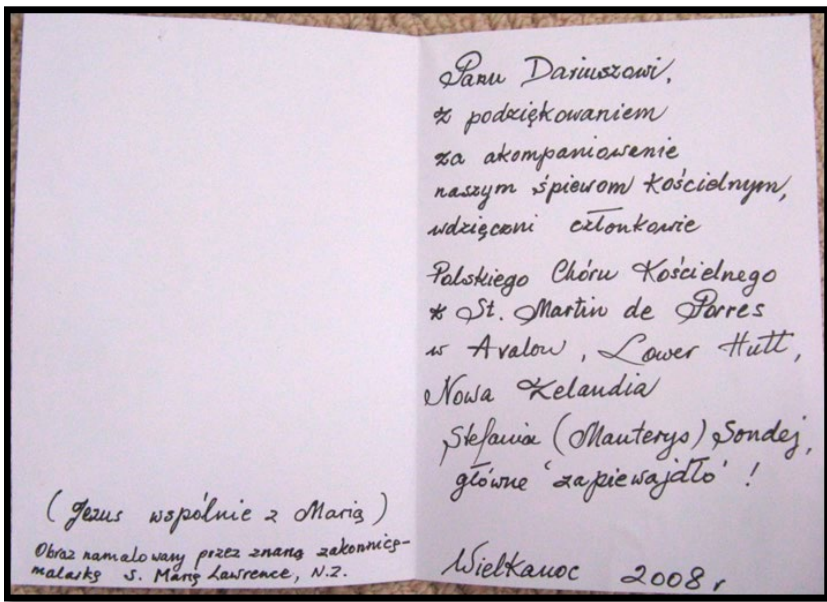 (Jezus wspólnie z Marią)
Obraz namalowany przez znaną zakonnicę-
malarkę S. Marię Lawrence, N.Z.
Panu Dariuszowi,
z podziękowaniem
za akompaniowanie
naszym śpiewom kościelnym,
wdzięczni członkowie
Polskiego Chóru Kościelnego
z St. Martin de Porres
w Avalon, Lower Hutt,
Nowa Zelandia
Stefania (Manterys) Sondej,
główne 'zapiewajdło'!
Wielkanoc 2008 r